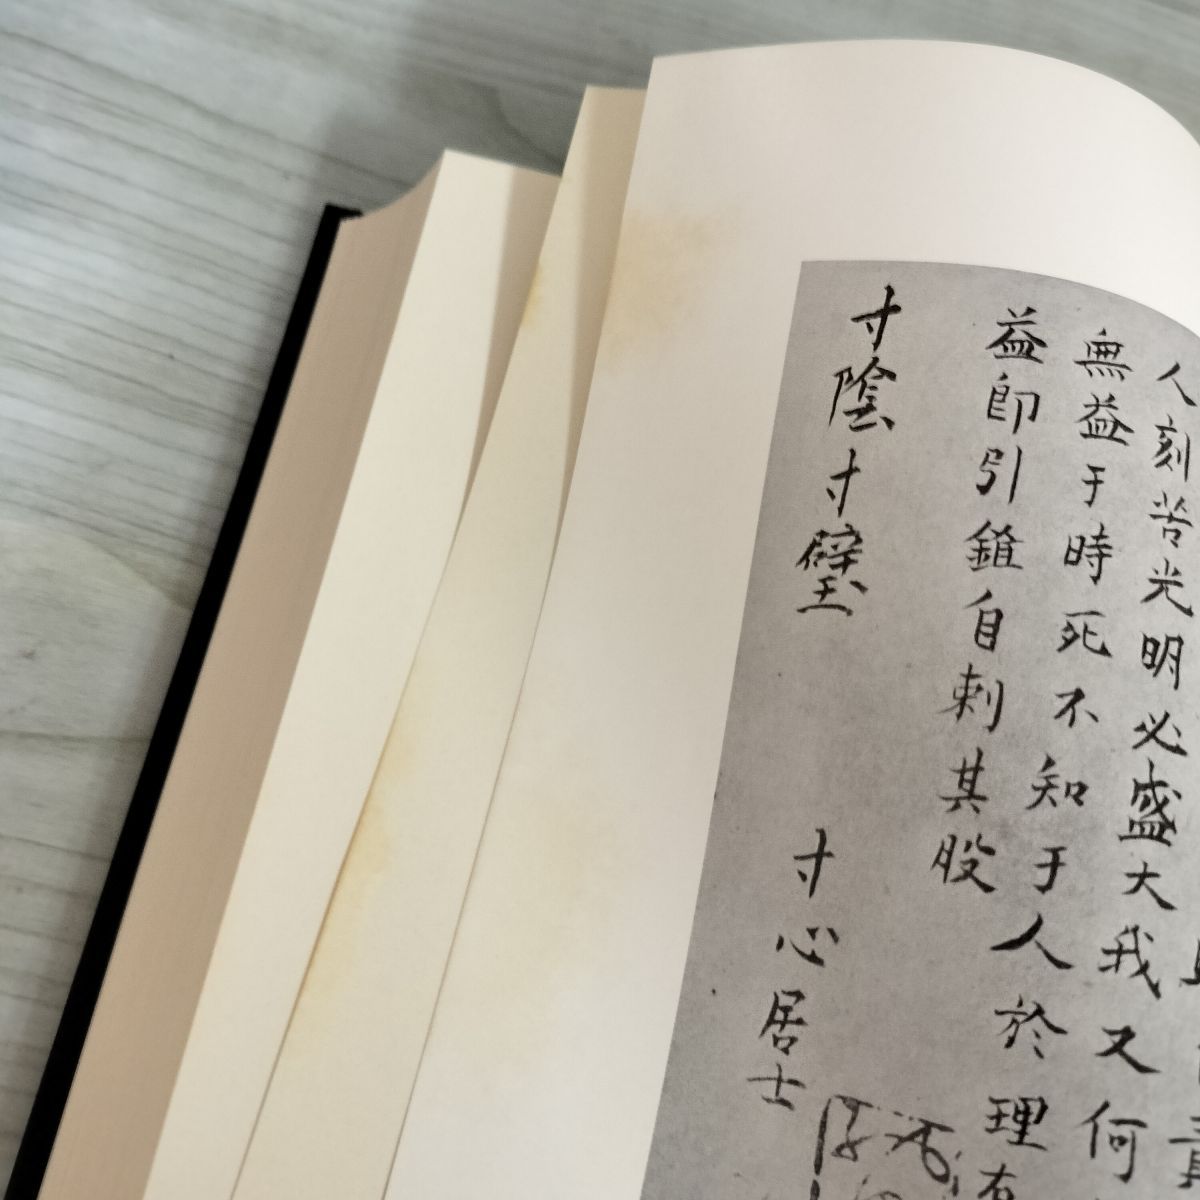 人刻苦光明必盛大我又何
無益于時死不知于人於理有
益即引錐自刺其股
寸陰寸璧
寸心居士